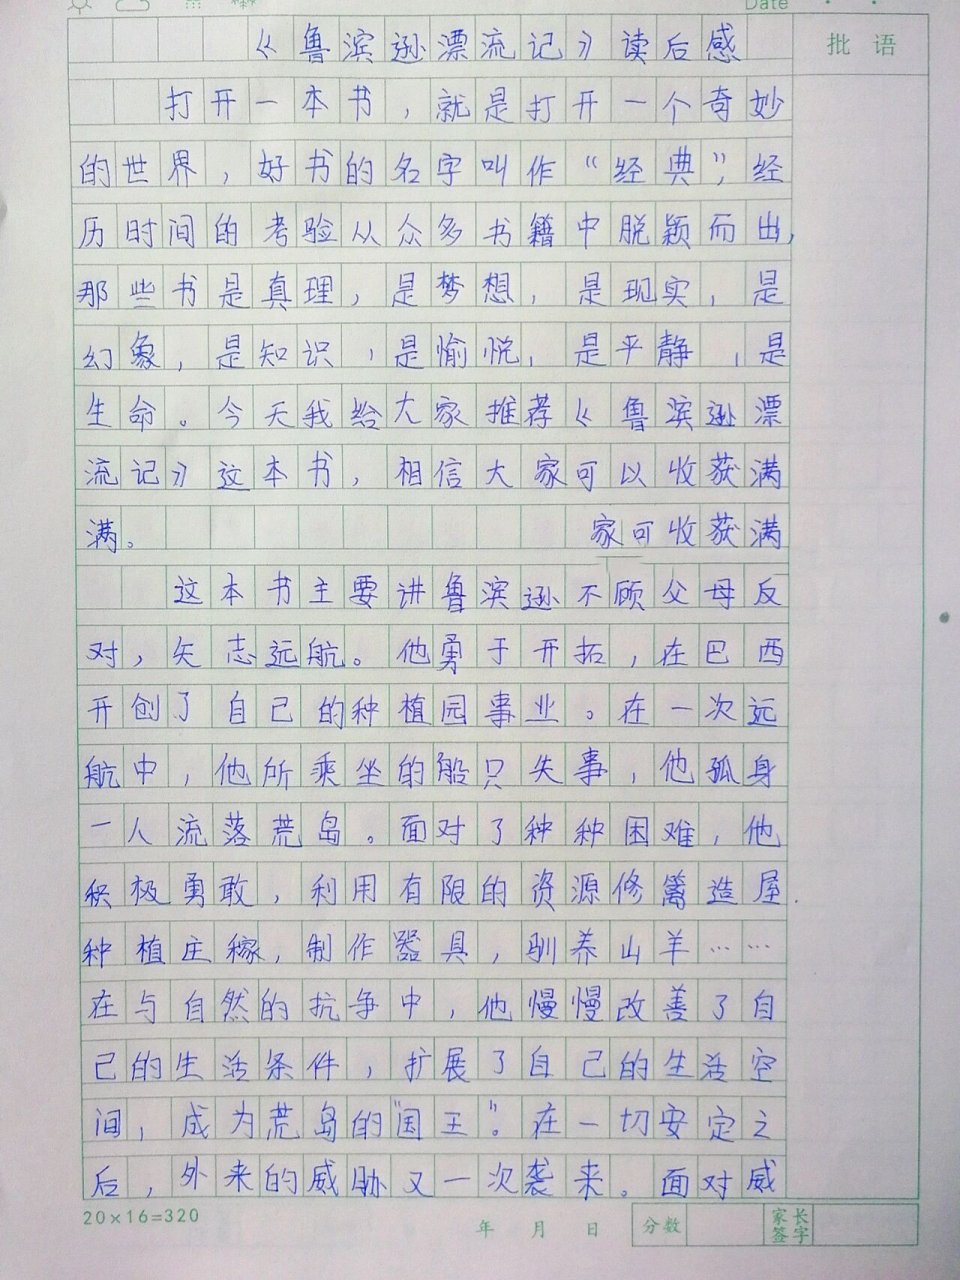 Date
《鲁滨逊漂流记》读后感
批语
打开一本书，就是打开一个奇妙
的世界，好书的名字叫作“经典”，经
历时间的考验从众多书籍中脱颖而出，
那些书是真理，是梦想，是现实，是
幻象，是知识，是愉悦，是平静，是
生命。今天我给大家推荐《鲁滨逊漂
流记》这本书，相信大家可以收获满
满。 家可收获满
这本书主要讲鲁滨逊不顾父母反
对，矢志远航。他勇于开拓，在巴西
开创了自己的种植园事业。在一次远
航中，他所乘坐的船只失事，他孤身
一人流落荒岛。面对了种种困难，他
积极勇敢，利用有限的资源修篱造屋.
种植庄稼，制作器具，驯养山羊……
在与自然的抗争中，他慢慢改善了自
己的生活条件，扩展了自己的生活空
间，成为荒岛的“国王”。在一切安定之
后，外来的威胁又一次袭来。面对威
20×16=320
年 月 日
分数
家长签字